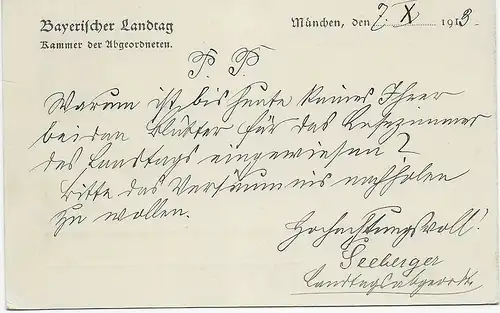 Bayerischer Landtag
Kammer der Abgeordneten.
München, den 7. X. 1913.
P. P.
Warum ist bis heute keines Ihrer
beiden Blätter für das Lesezimmer
des Landtags eingewiesen?
Bitte das Versäumnis nachholen
zu wollen.
Hochachtungsvoll!
Seeberger
Landtagsabgeordn.